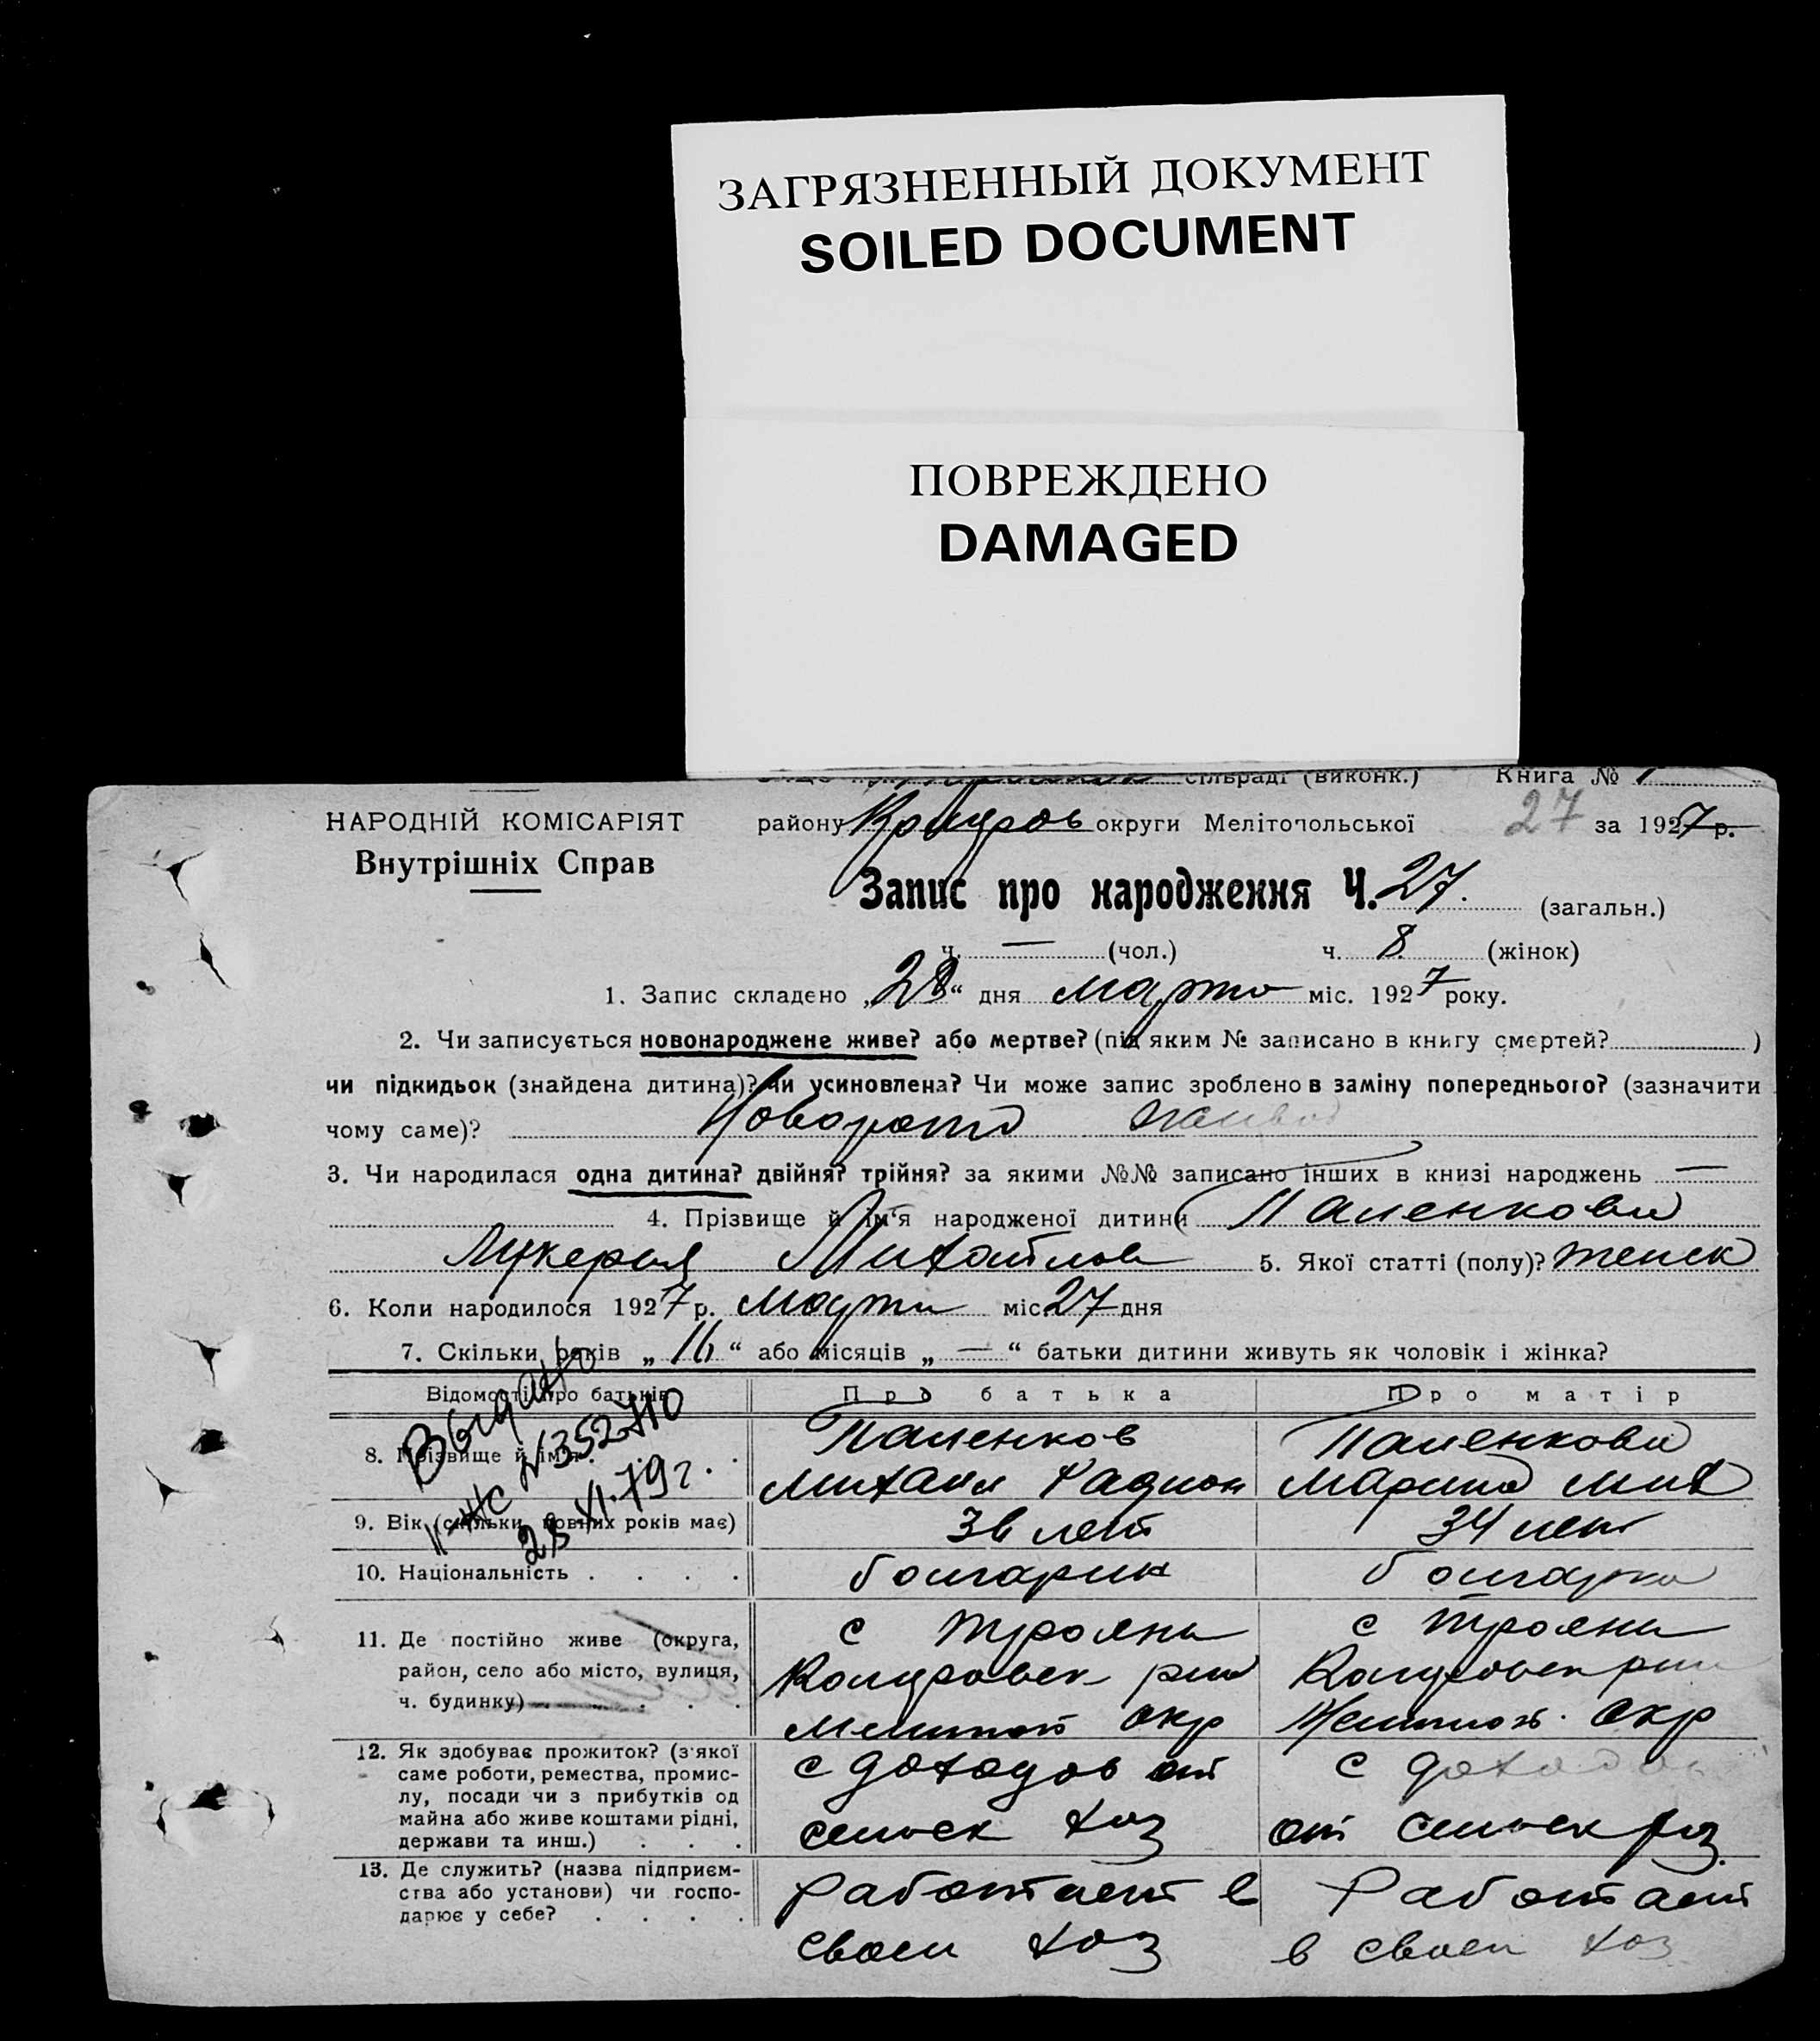 ЗАГРЯЗНЕННЫЙ ДОКУМЕНТ
SOILED DOCUMENT
ПОВРЕЖДЕНО
DAMAGED
сільраді (виконк.) Книга № 1
НАРОДНІЙ КОМІСАРІЯТ
Внутрішніх Справ
району округи Мелітопольської 27 за 1927 р.
Запис про народження Ч. 27. (загальн.)
ч. — (чол.) ч. 8 (жінок)
1. Запис складено „28“ дня марта міс. 1927 року.
2. Чи записується новонароджене живе? або мертве? (під яким № записано в книгу смертей? )
чи підкидьок (знайдена дитина)? чи усиновлена? Чи може запис зроблено в заміну попереднього? (зазначити
чому саме)?
3. Чи народилася одна дитина? двійня? трійня? за якими №№ записано інших в книзі народжень —
4. Прізвище й ім'я народженої дитини Паленкова
Лукерия Михайлов 5. Якої статті (полу)? женск
6. Коли народилося 1927 р. марта міс. 27 дня
7. Скільки років „16“ або місяців „—“ батьки дитини живуть як чоловік і жінка?
Відомості про батьків Про батька Про матір
8. Прізвище й ім'я. Паленков Паленкова
Михаил Радион Марина Мих
Выдано
І-ЖС №352710
28.XI.79г.
9. Вік (скільки повних років має) 36 лет 34 лет
10. Національність . . . . болгарин болгарка
11. Де постійно живе (округа, с Трояны с Трояны
район, село або місто, вулиця,
ч. будинку) . . . . Мелитоп окр Мелитоп. Окр
12. Як здобуває прожиток? (з якої с доходов от с доходов
саме роботи, ремества, промис-
лу, посади чи з прибутків од
майна або живе коштами рідні, сельск хоз от сельск хоз
держави та инш.) . . .
13. Де служить? (назва підприєм- работает в Работает
ства або установи) чи госпо-
дарює у себе? . . . . своем хоз в своем хоз